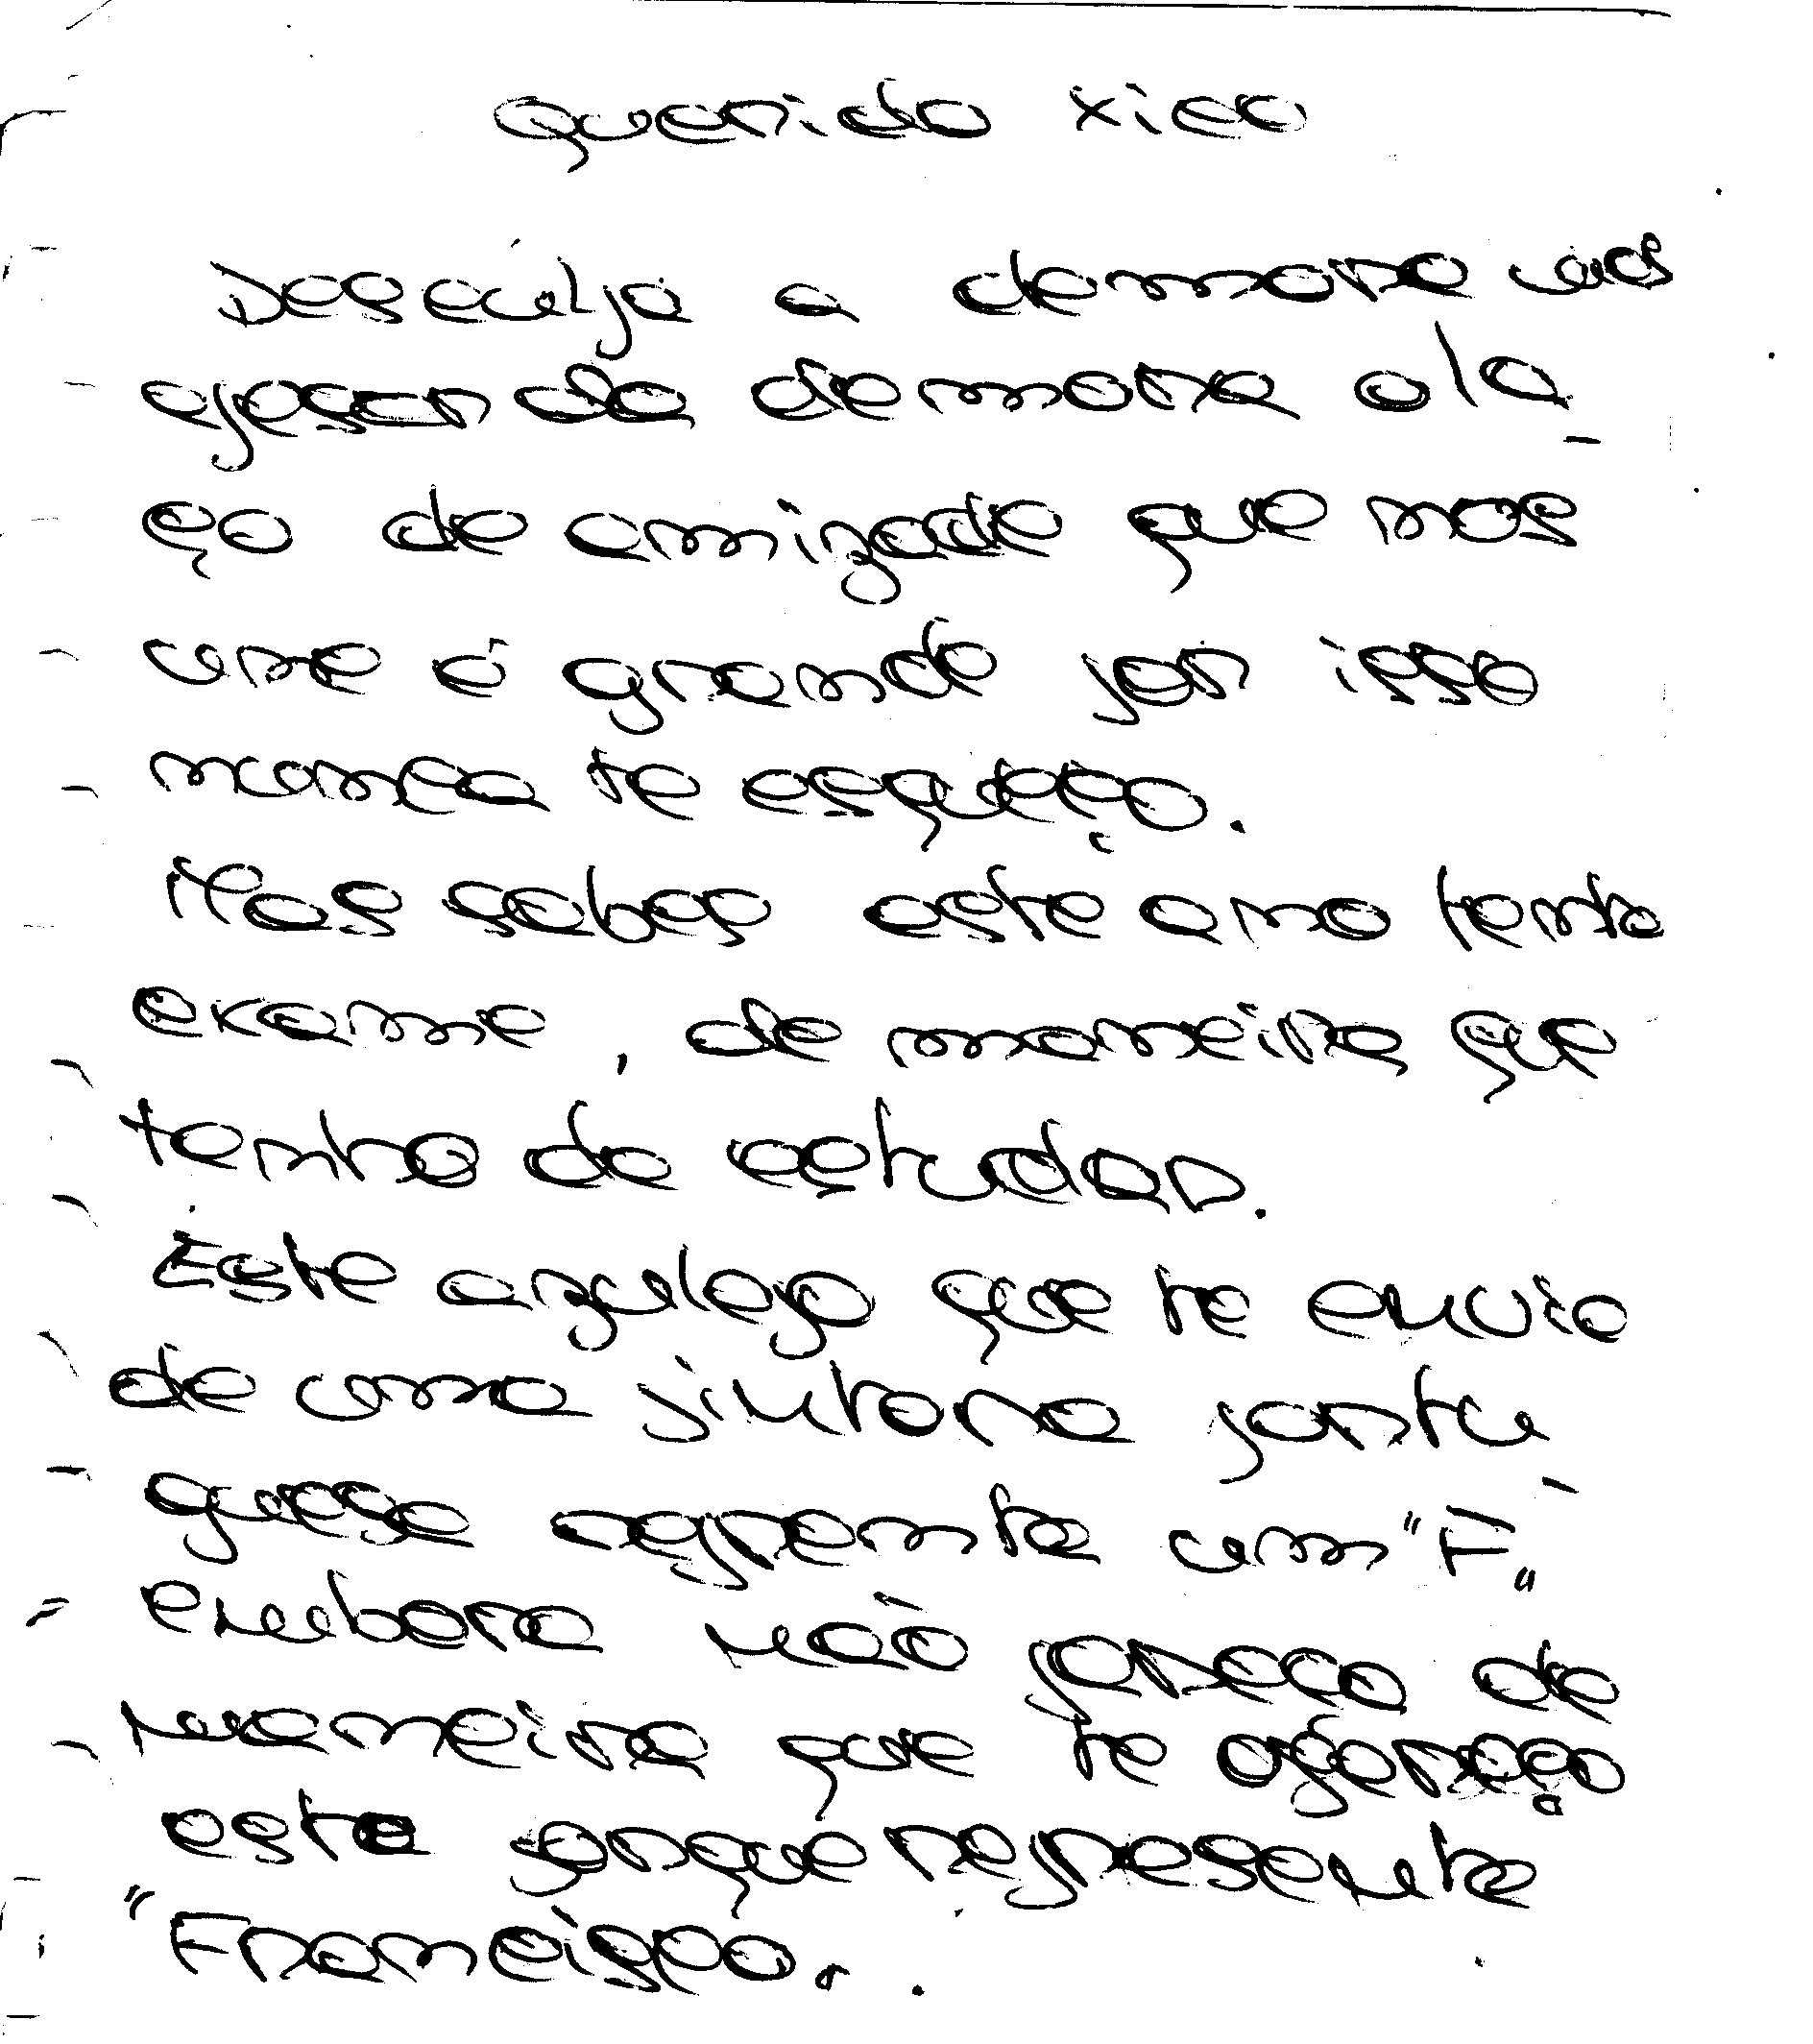 Querido Xico
Desculpa a demora mas
apesar da demora o la-
ço de amizade que nos
une é grande por isso
nunca te esqueço.
Mas sabes este ano tenho
exame, de maneira que
tenho de estudar.
Este azulejo que te envio
de uma pintora portu-
guesa representa um "F"
embora não pareça de
maneira que te ofereço
este porque representa
"Francisco".